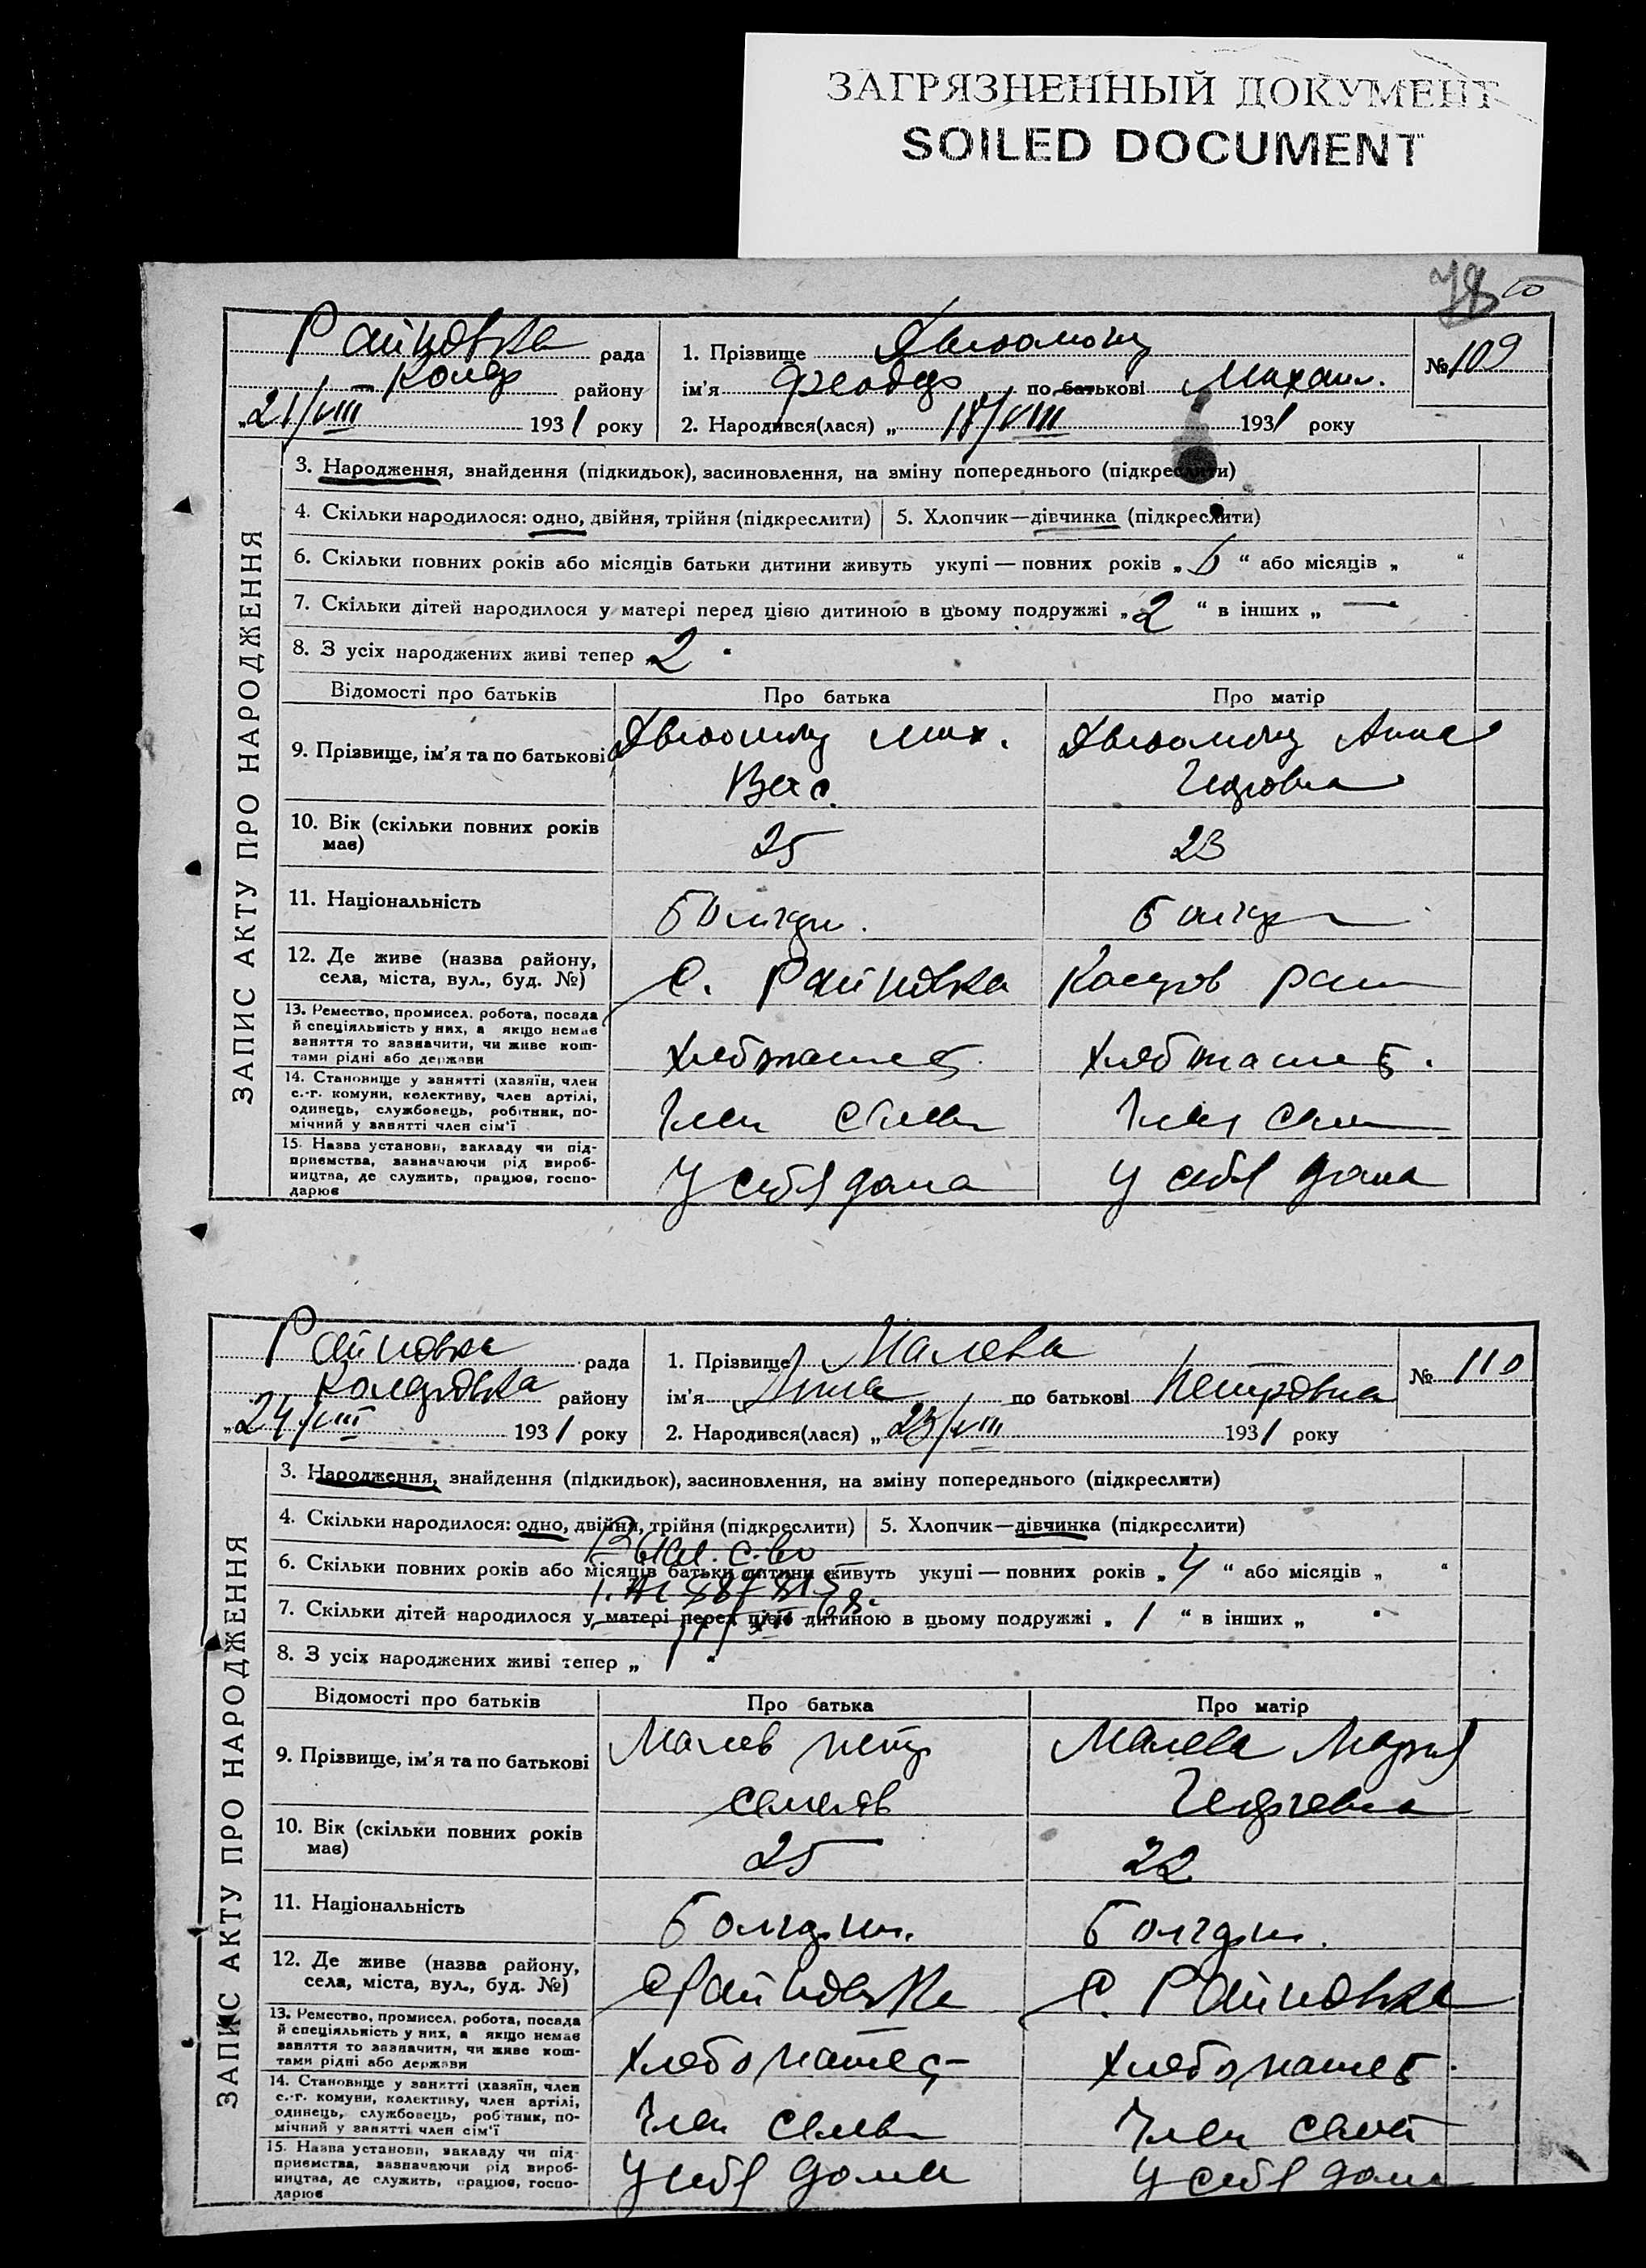 ЗАГРЯЗНЕННЫЙ ДОКУМЕНТ
SOILED DOCUMENT
78
ЗАПИС АКТУ ПРО НАРОДЖЕННЯ
Райновка рада
району
„21/VIII 1931 року
1. Прізвище
ім'я по батькові Михаил.
2. Народився(лася) „ 18/VIII 1931 року
№ 109
3. Народження, знайдення (підкидьок), засиновлення, на зміну попереднього (підкреслити)
4. Скільки народилося: одно, двійня, трійня (підкреслити)
5. Хлопчик—дівчинка (підкреслити)
6. Скільки повних років або місяців батьки дитини живуть укупі — повних років „ 6 “ або місяців „ “
7. Скільки дітей народилося у матері перед цією дитиною в цьому подружжі „ 2 “ в інших „ —
8. З усіх народжених живі тепер „ 2 “
Відомості про батьків Про батька Про матір
9. Прізвище, ім'я та по батькові
Мих. Анна
Вас.
10. Вік (скільки повних років має) 25 23
11. Національність Болгар. Болгар
12. Де живе (назва району, села, міста, вул., буд. №)
С. Райновка
13. Ремество, промисел, робота, посада й спеціяльність у них, а якщо немає заняття то зазначити, чи живе коштами рідні або держави
Хлебопашец Хлебопашец.
14. Становище у занятті (хазяїн, член с.-г. комуни, колективу, член артілі, одинець, службовець, робітник, помічний у занятті член сім'ї
Член семьи Член семьи
15. Назва установи, закладу чи підприємства, зазначаючи рід виробництва, де служить, працює, господарює
У себя дома У себя дома
ЗАПИС АКТУ ПРО НАРОДЖЕННЯ
Райновка рада
Коларовка району
„24/VIII 1931 року
1. Прізвище Малева
ім'я по батькові Петровна
2. Народився(лася) „ 23/VIII 1931 року
№ 110
3. Народження, знайдення (підкидьок), засиновлення, на зміну попереднього (підкреслити)
4. Скільки народилося: одно, двійня, трійня (підкреслити)
5. Хлопчик—дівчинка (підкреслити)
6. Скільки повних років або місяців батьки дитини живуть укупі — повних років „ 4 “ або місяців „ “
7. Скільки дітей народилося у матері перед цією дитиною в цьому подружжі „ 1 “ в інших „ “
8. З усіх народжених живі тепер „ 1 “
Відомості про батьків Про батька Про матір
9. Прізвище, ім'я та по батькові
Малев Петр Малева Мария
Семенов Георгевна
10. Вік (скільки повних років має) 25 22
11. Національність Болгарин. Болгарин.
12. Де живе (назва району, села, міста, вул., буд. №)
С Райновка С. Райновка
13. Ремество, промисел, робота, посада й спеціяльність у них, а якщо немає заняття то зазначити, чи живе коштами рідні або держави
Хлебопашец Хлебопашец
14. Становище у занятті (хазяїн, член с.-г. комуни, колективу, член артілі, одинець, службовець, робітник, помічний у занятті член сім'ї
Член семьи Член семьи
15. Назва установи, закладу чи підприємства, зазначаючи рід виробництва, де служить, працює, господарює
У себя дома У себя дома